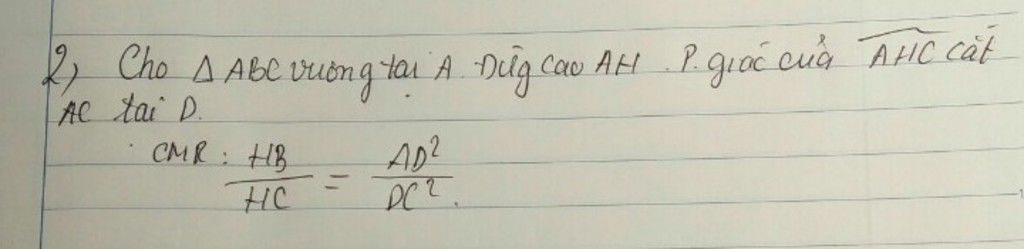 2, Cho Δ ABC vuông tại A. Đường cao AH. P. giác của AHC cắt
AC tại D.
CMR: HB/HC = AD²/DC².